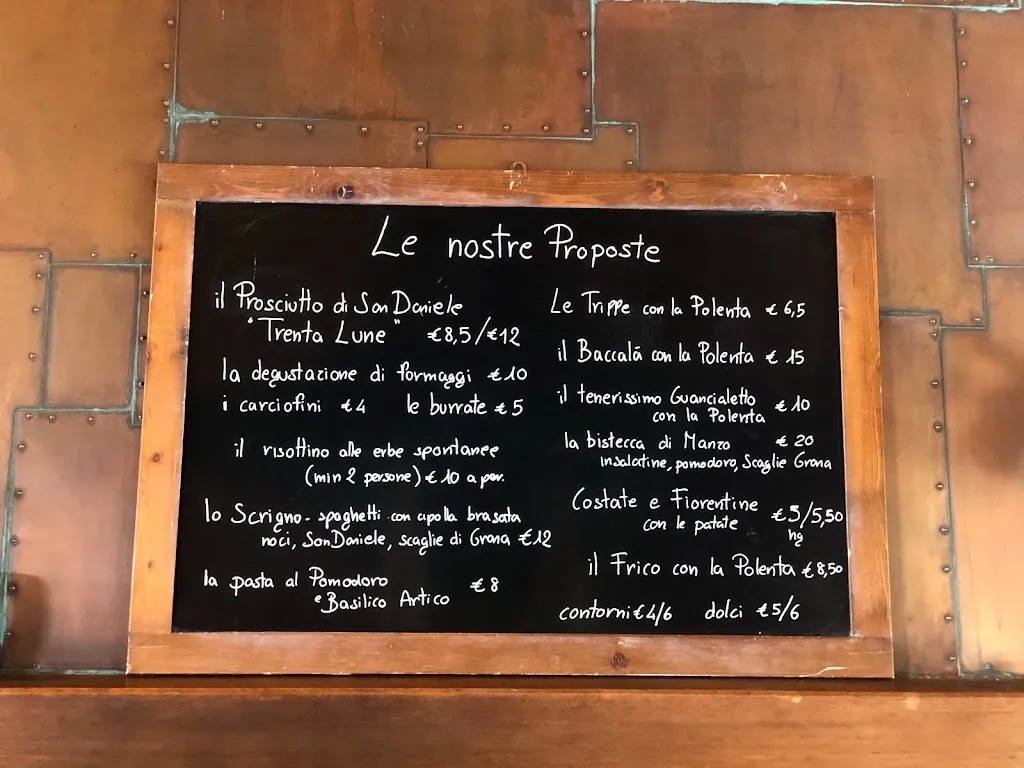 Le nostre Proposte
il Prosciutto di San Daniele
"Trenta Lune" €8,5/€12
la degustazione di formaggi €10
i carciofini €4 le burrate €5
il risottino alle erbe spontanee
(min 2 persone) €10 a per.
lo Scrigno - spaghetti con cipolla brasata
noci, San Daniele, scaglie di Grana €12
la pasta al Pomodoro €8
e Basilico Artico
Le Trippe con la Polenta €6,5
il Baccalà con la Polenta €15
il tenerissimo Guancialetto €10
con la Polenta
la bistecca di Manzo €20
insalatine, pomodoro, Scaglie Grana
Costate e Fiorentine €5/5,50
con le patate hg
il Frico con la Polenta €8,50
contorni €4/6 dolci €5/6